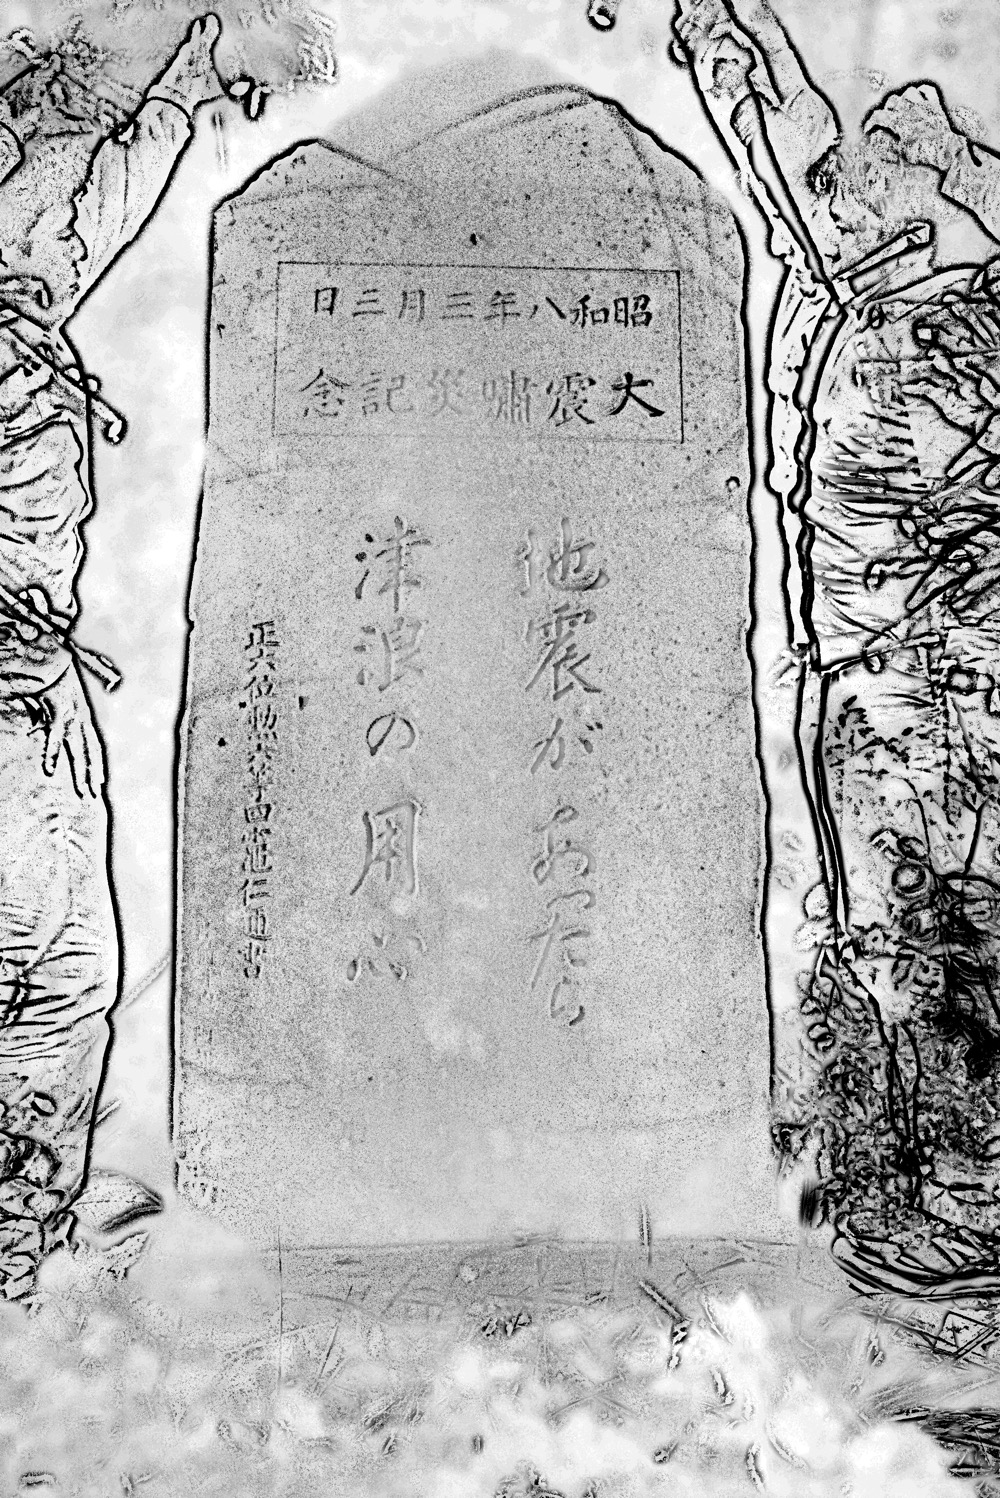 昭和八年三月三日
大震嘯災記念
地震があったら
津浪の用心
正六位勲六等